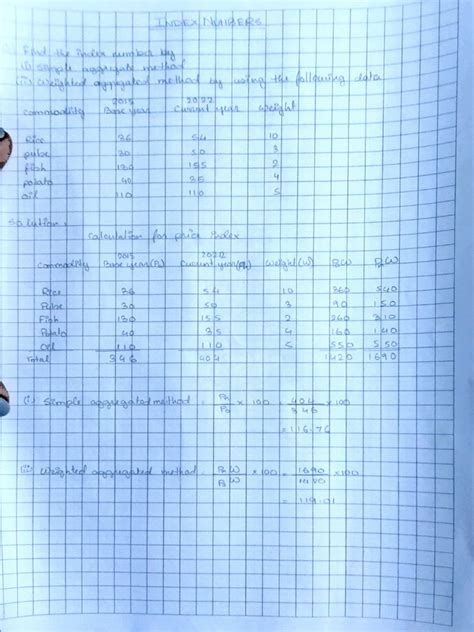 INDEX NUMBERS
Find the index number by
(i) Simple aggregate method
(ii) Weighted aggregated method by using the following data
Commodity 2015 Base year 2022 Current year Weight
Rice 36 54 10
pulse 30 50 3
fish 130 155 2
potato 40 35 4
oil 110 110 5
Solution:
Calculation for price index
Commodity 2015 Base year(P₀) 2022 Current year(P₁) Weight(W) P₀W P₁W
Rice 36 54 10 360 540
Pulse 30 50 3 90 150
Fish 130 155 2 260 310
Potato 40 35 4 160 140
Oil 110 110 5 550 550
Total 346 404 1420 1690
(i) Simple aggregated method = P₁/P₀ × 100 = 404/346 × 100
= 116.76
(ii) Weighted aggregated method = P₁W/P₀W × 100 = 1690/1420 × 100
= 119.01